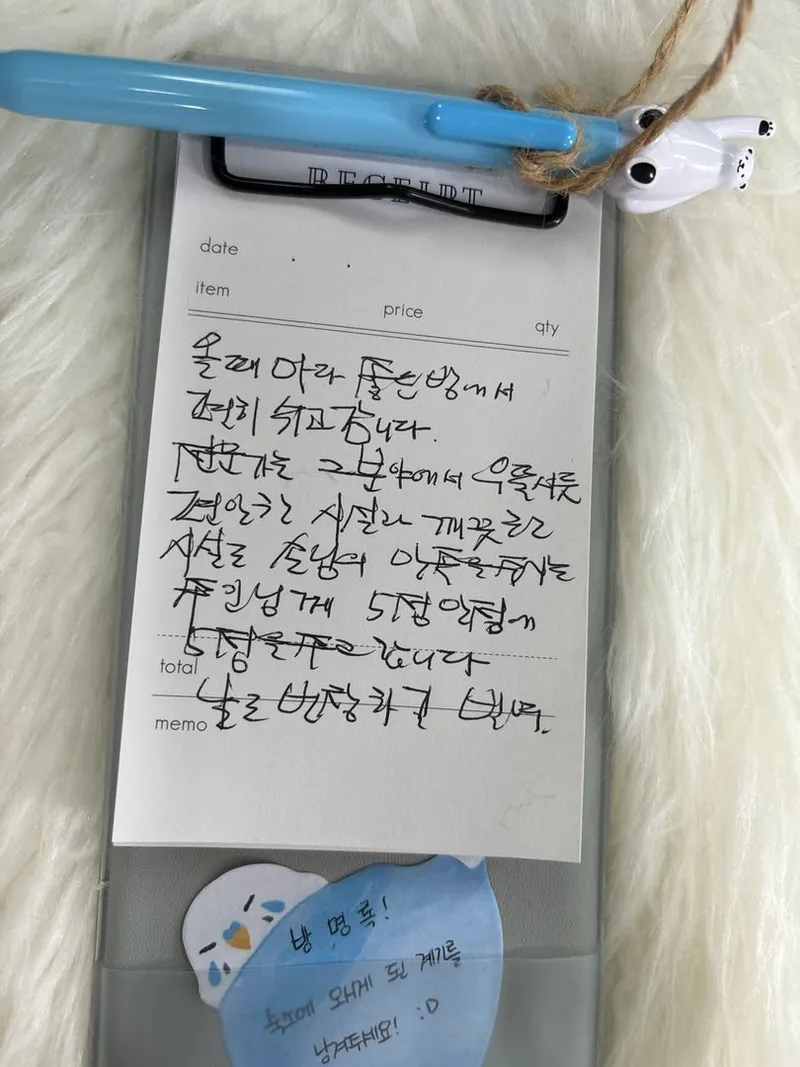 RECEIPT
date . .
item
price
qty
올때 마다 좋은 방에서
편히 쉬고 갑니다.
전문가는 그 분야에서 우뚝서듯
편안한 시설과 깨끗한
시설로 손님의 만족을 주시는
주인님께 5점 만점에
5점을 주고 갑니다
total
날로 번창하길 빌며.
memo
방명록!
숙소에 오시게 된 계기를
남겨주세요! :D